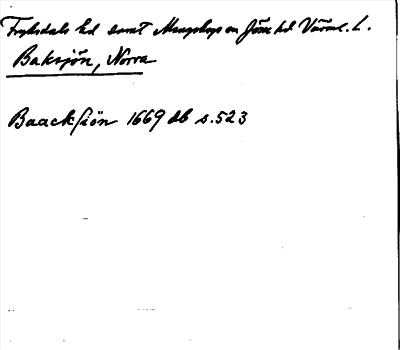 Fryksdals hd samt Mangskogs sn Jösse hd Värml. L.
Baksjön, Norra
Baacksiön 1669 db s. 523